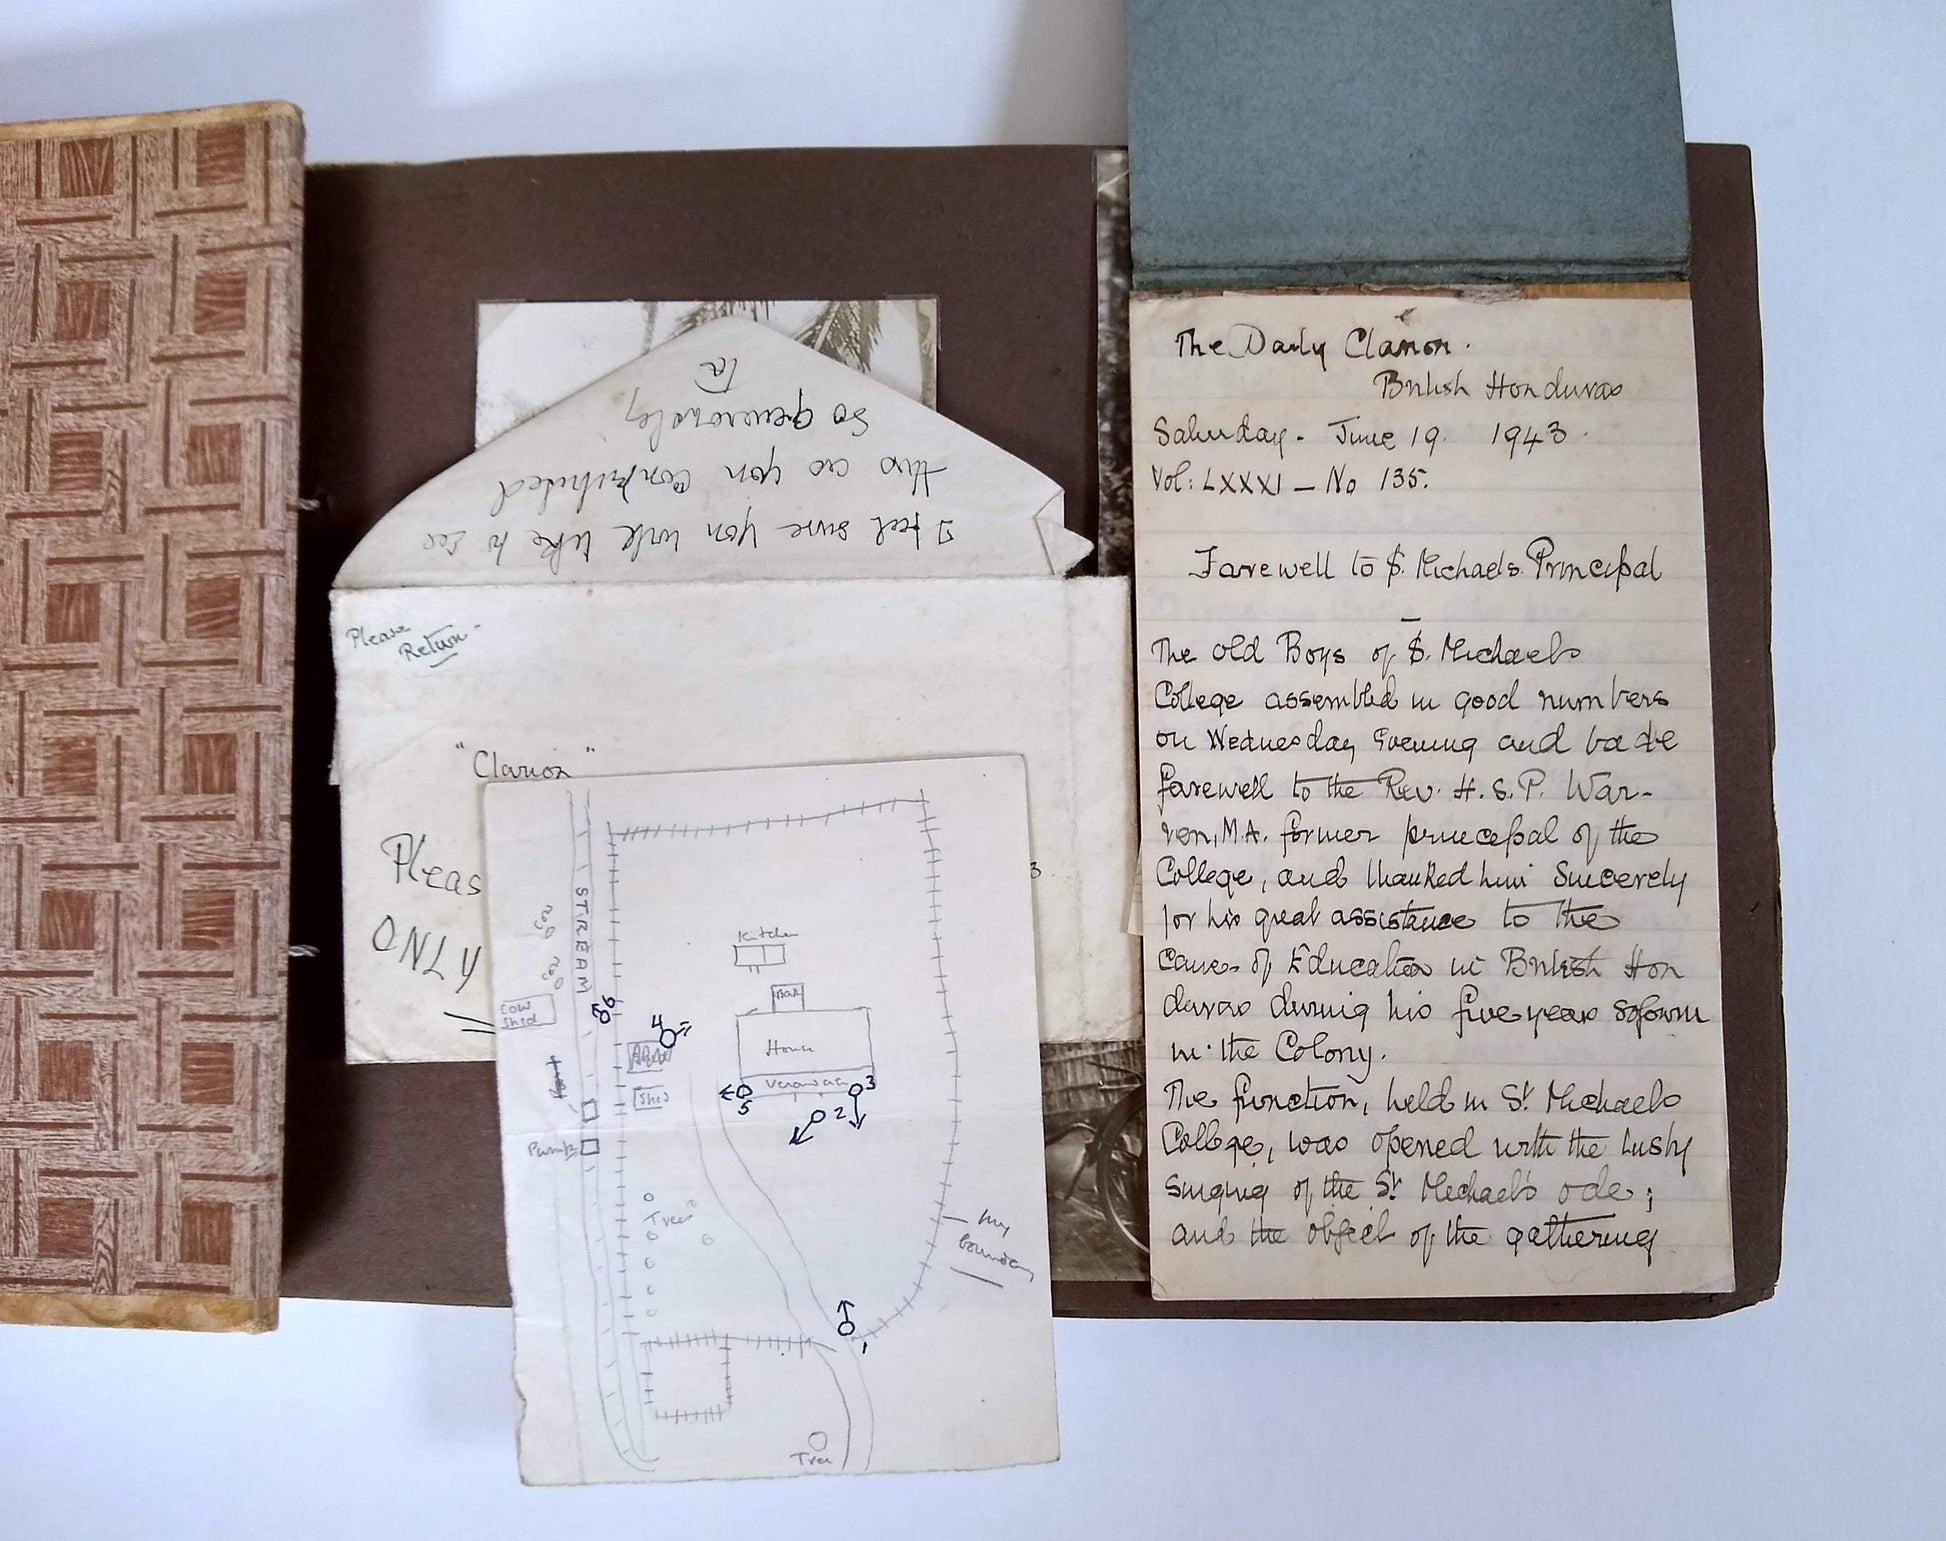 I feel sure you will like to see
this as you contributed
so generously
Please
Return.
"Clarion"
Pleas
ONLY
3.
STREAM
Cow
Cow
Cow
Shed
Kitchen
Bath
House
Verandah
Shed
Pump
Trees
my
boundary
Tree
1
2
3
4
5
6
The Daily Clarion.
British Honduras
Saturday - June 19. 1943.
Vol: LXXXI - No 135.
Farewell to St. Michaels Principal
The old Boys of St. Michaels
College assembled in good numbers
on Wednesday Evening and bade
farewell to the Rev. H.S.P. War-
ren, M.A. former principal of the
College, and thanked him Sincerely
for his great assistance to the
cause of Education in British Hon
duras during his five years sojourn
in the Colony.
The function, held in St Michaels
College, was opened with the lusty
singing of the St Michael's ode;
and the object of the gathering